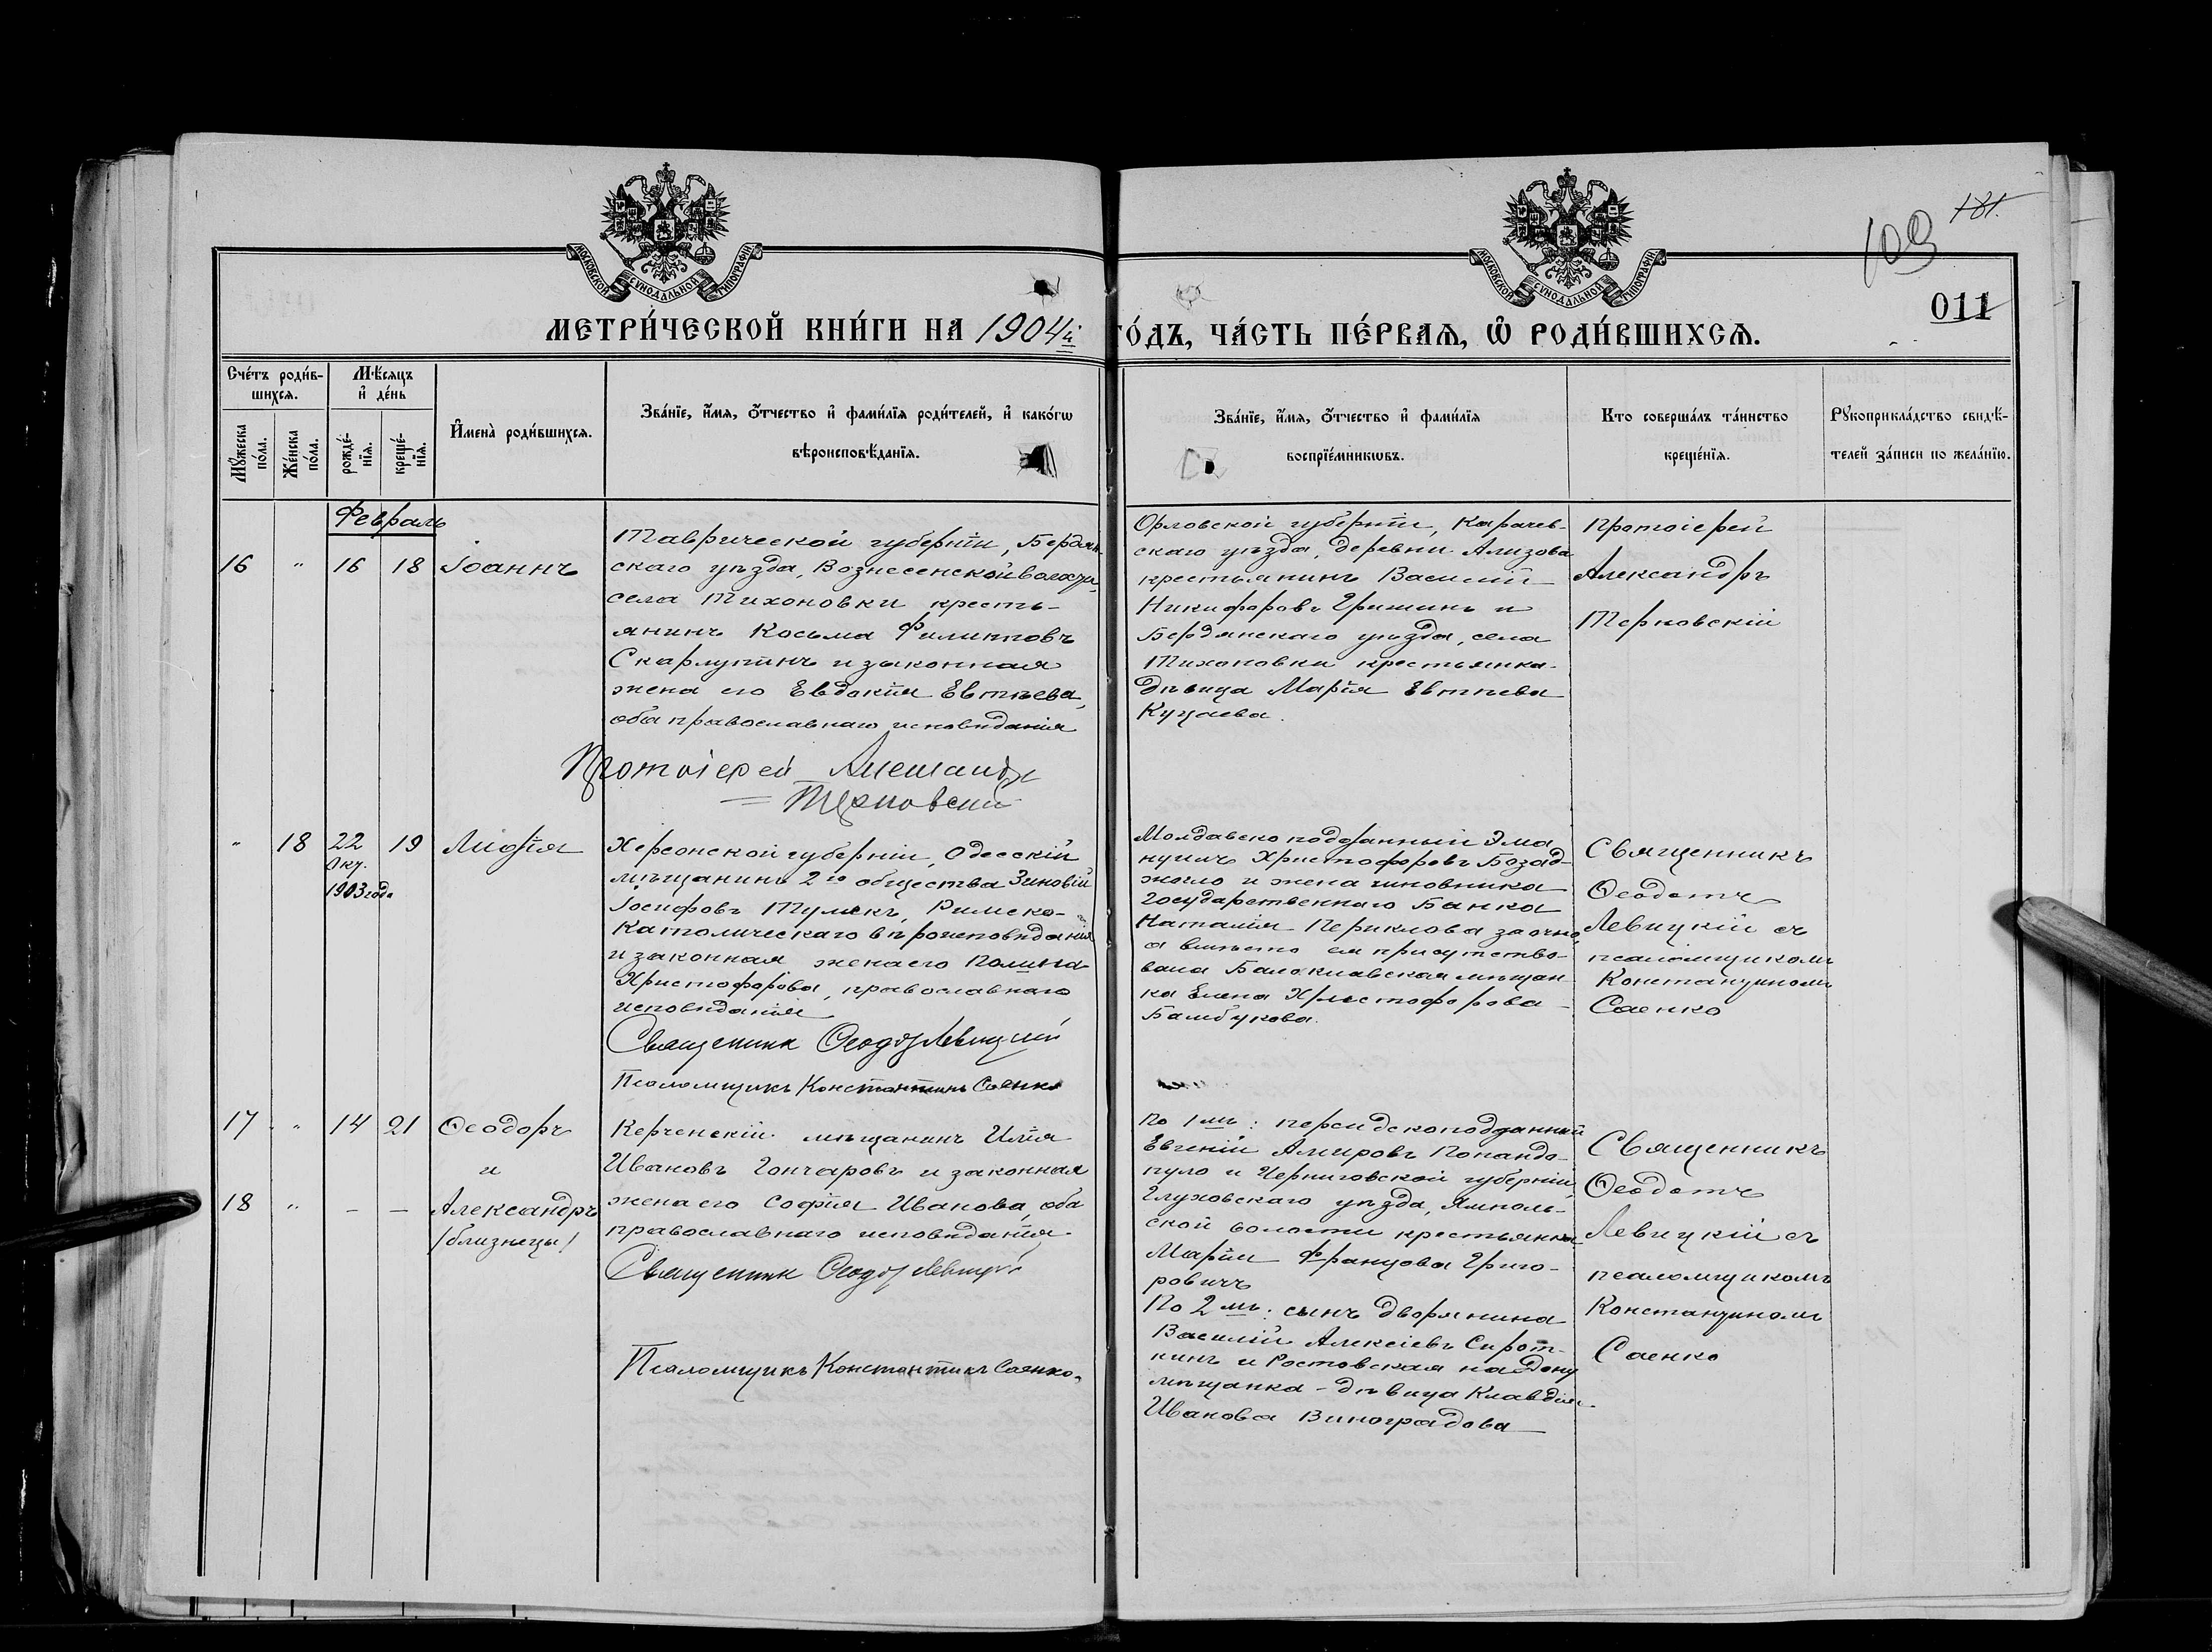 181.
109
011
МОСКОВСКОЙ СУНОДАЛЬНОЙ ТИПОГРАФІИ
МОСКОВСКОЙ СУНОДАЛЬНОЙ ТИПОГРАФІИ
МЕТРИ́ЧЕСКОЙ КНИ́ГИ НА 1904й ГО́ДЪ, ЧА́СТЬ ПЕ́РВАѦ, Ѡ РОДИ́ВШИХСѦ.
Сче́тъ роди́в-
шихсѧ.
Мꙋ́жеска по́ла.
Же́нска по́ла.
Мѣ́сѧцъ
и де́нь
рожде́-
нїѧ.
креще́-
нїѧ.
И҆мена̀ роди́вшихсѧ.
Зва́нїе, и҆́мѧ, ѻ҆́тчество и҆ фами́лїѧ роди́телей, и҆ како́гѡ
вѣроисповѣ́данїѧ.
Зва́нїе, и҆́мѧ, ѻ҆́тчество и҆ фами́лїѧ
воспрїе́мникѡвъ.
Кто соверша́лъ та́инство
креще́нїѧ.
Рꙋкоприкла́дство свидѣ́-
телей за́писи по жела́нїю.
Февраль
16 " 16 18 Іоаннъ
Таврической губерніи, Бердян-
скаго уѣзда, Вознесенской волости,
села Тихоновки кресть-
янинъ Косьма Филипповъ
Скарлупинъ и законная
жена его Евдокія Евтѣева,
оба православнаго исповѣданія
Орловской губерніи, Карачев-
скаго уѣзда, деревни Ализова
крестьянинъ Василій
Никифоровъ Гришинъ и
Бердянскаго уѣзда, села
Тихоновки крестьянка-
дѣвица Марія Евтѣева
Куцаева.
Протоіерей
Александръ
Терновскій
Протоіерей Александръ
Терновскій
" 18 22 19 Лидія
Окт.
1903 года
Херсонской губерніи, Одесскій
мѣщанинъ 2го общества Зиновій
Іосифовъ Тумекъ, Римско-
Католическаго вѣроисповѣданія
и законная жена его Полина
Христофорова, православнаго
исповѣданія
Священник Ѳеодотъ Левицкій
Псаломщикъ Константинъ Саенко
Молдавскоподданный Эма
нуилъ Христофоровъ Бозад-
жогло и жена чиновника
Государственнаго Банка
Наталія Периклова заочно,
а вмѣсто ея присутство-
вала Балаклавская мѣщан
ка Елена Христофорова
Бамбукова.
Священникъ
Ѳеодотъ
Левицкій съ
псаломщикомъ
Константиномъ
Саенко
17 " 14 21 Ѳеодоръ
и
18 " - - Александръ
/близнецы/
Керченскій мѣщанинъ Илія
Ивановъ Гончаровъ и законная
жена его Софія Иванова, оба
православнаго исповѣданія.
Священник Ѳеодотъ Левицкій
Псаломщикъ Константинъ Саенко.
По 1мъ: персидскоподданный
Евгеній Амировъ Попандо-
пуло и Черниговской губерніи,
Глуховскаго уѣзда, Ямполь-
ской волости крестьянка
Марія Францова Григо-
ровичъ
По 2мъ: сынъ дворянина
Василій Алексіевъ Сирот-
кинъ и Ростовская на Дону
мѣщанка-дѣвица Клавдія
Иванова Виноградова
Священникъ
Ѳеодотъ
Левицкій съ
псаломщикомъ
Константиномъ
Саенко